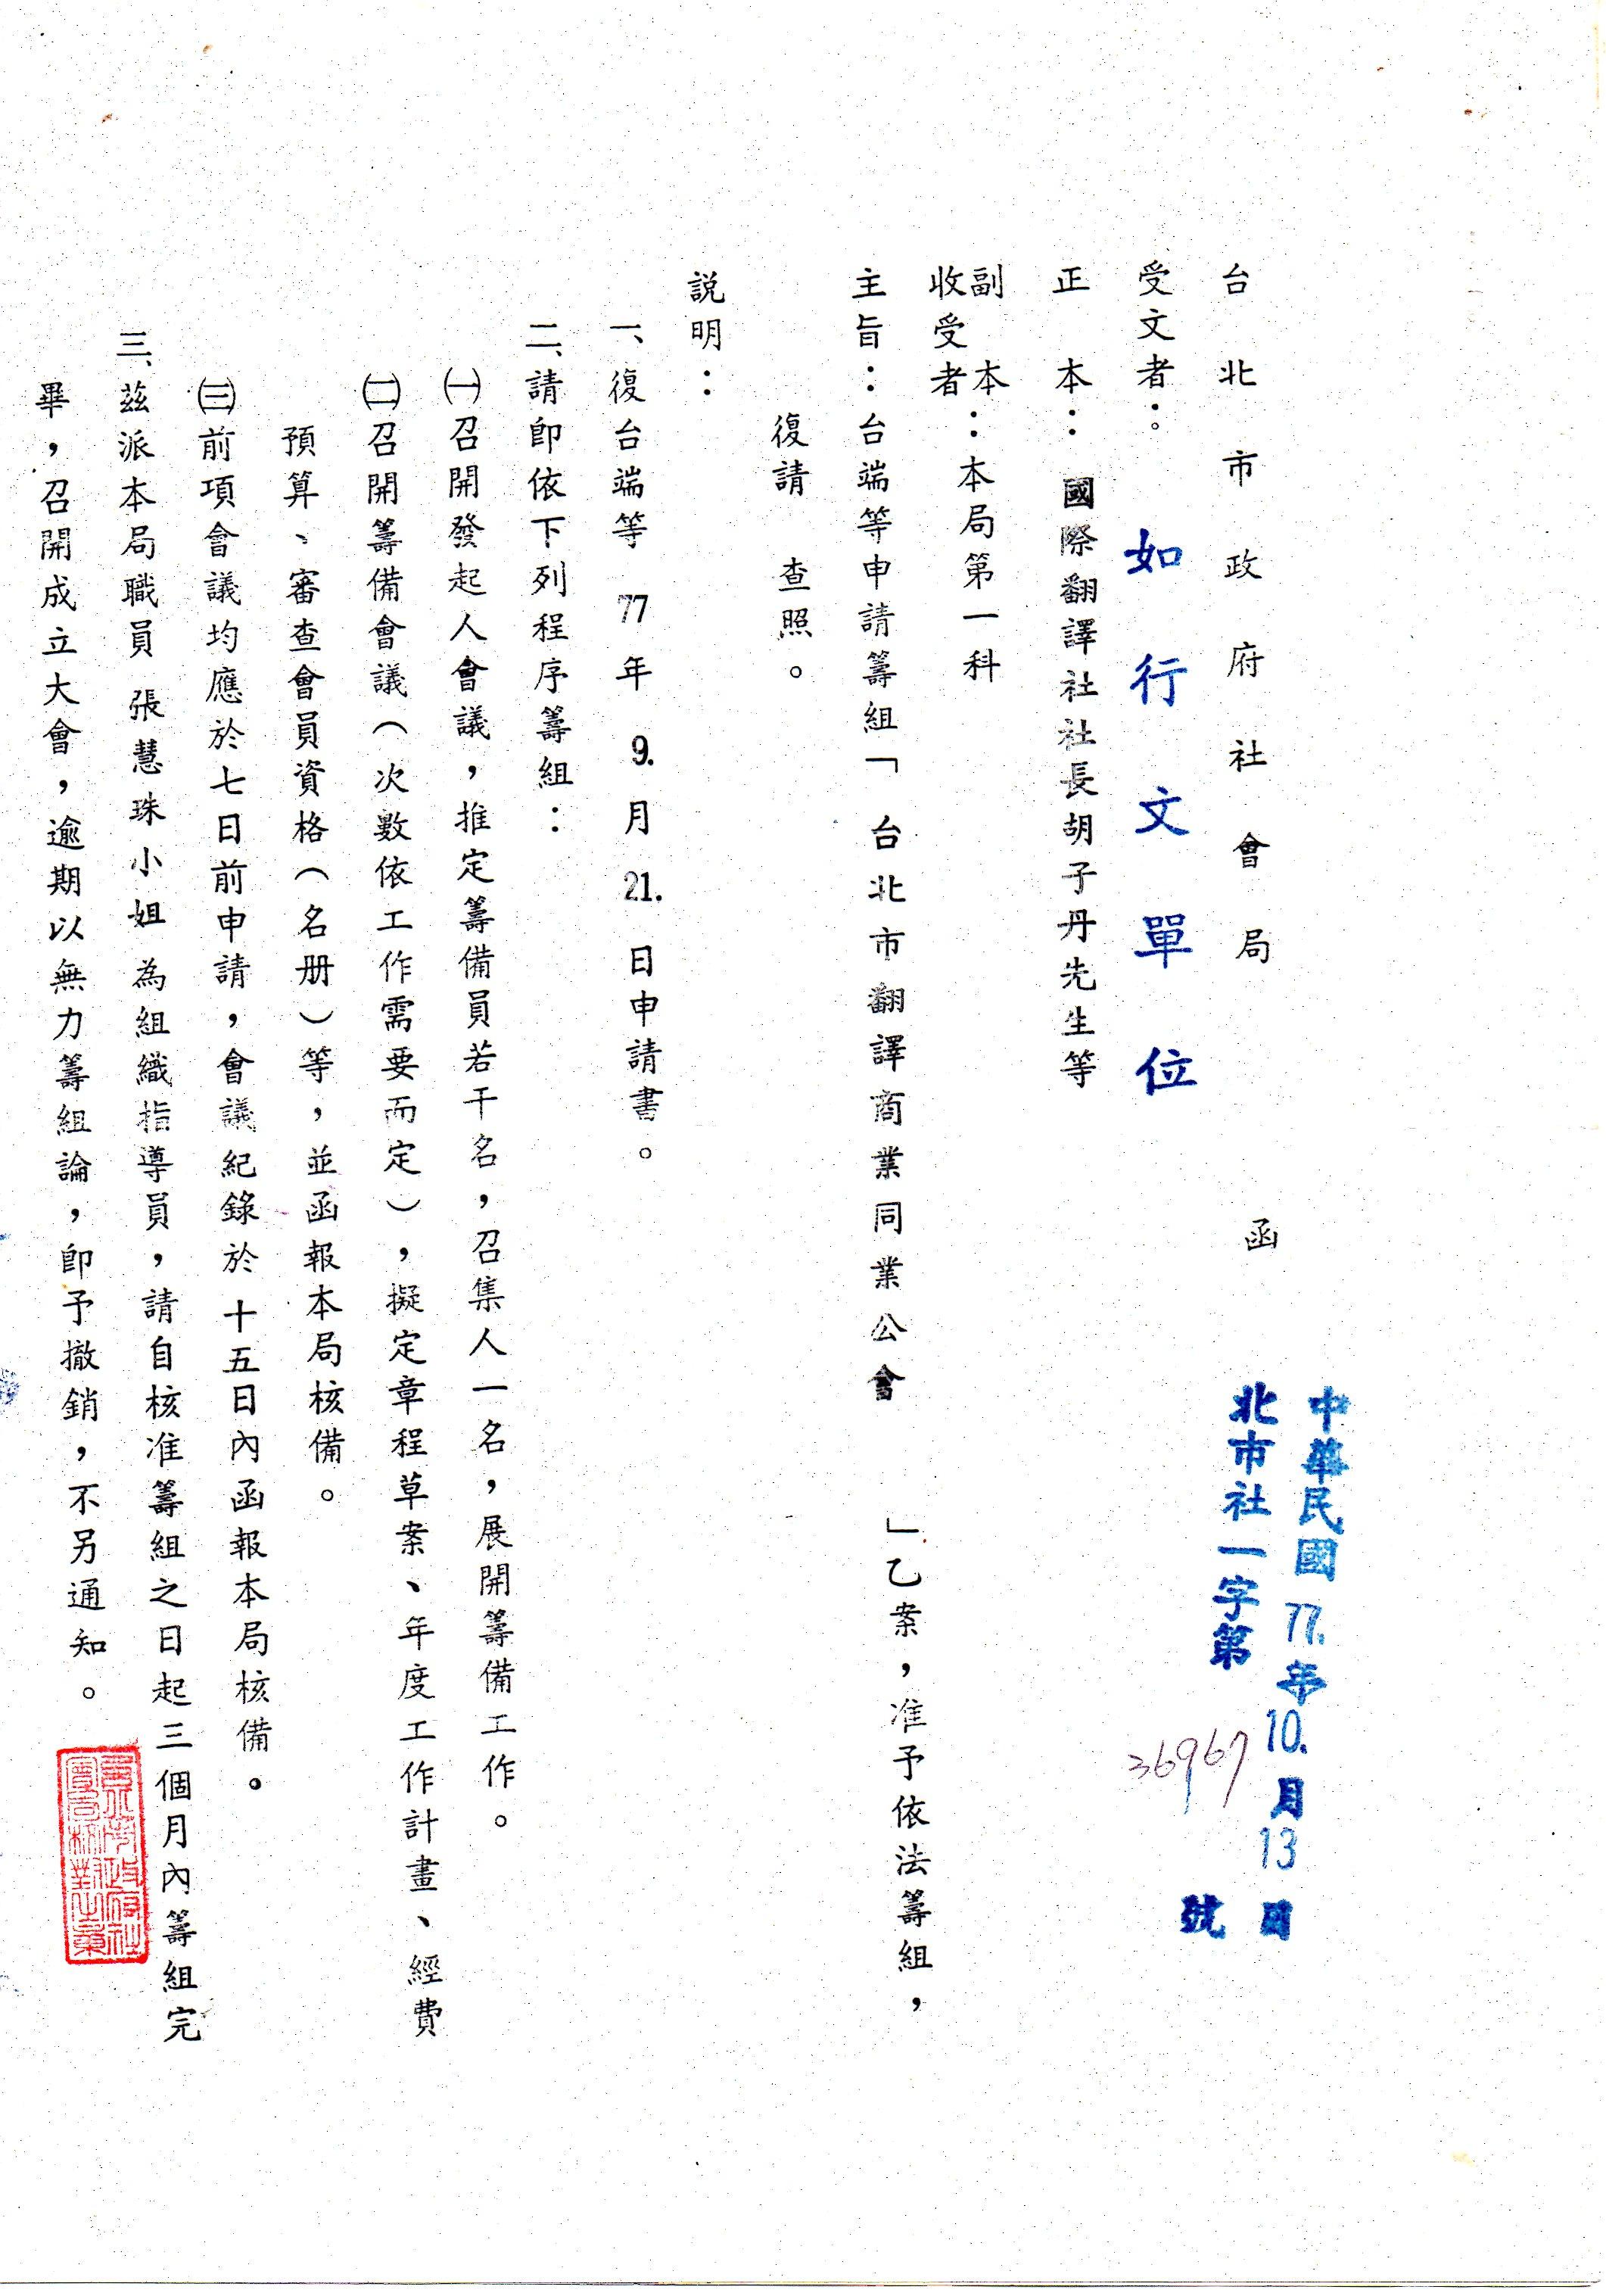 台北市政府社會局　函
中華民國77.年10.月13日
北市社一字第36967號
受文者：如行文單位
正　本：國際翻譯社社長胡子丹先生等
副　本：本局第一科
收受者
主旨：台端等申請籌組「台北市翻譯商業同業公會」乙案，准予依法籌組，
復請　查照。
說明：
一、復台端等77年9.月21.日申請書。
二、請即依下列程序籌組：
㈠召開發起人會議，推定籌備員若干名，召集人一名，展開籌備工作。
㈡召開籌備會議（次數依工作需要而定），擬定章程草案、年度工作計畫、經費
預算、審查會員資格（名册）等，並函報本局核備。
㈢前項會議均應於七日前申請，會議紀錄於十五日內函報本局核備。
三、茲派本局職員張慧珠小姐為組織指導員，請自核准籌組之日起三個月內籌組完
畢，召開成立大會，逾期以無力籌組論，即予撤銷，不另通知。